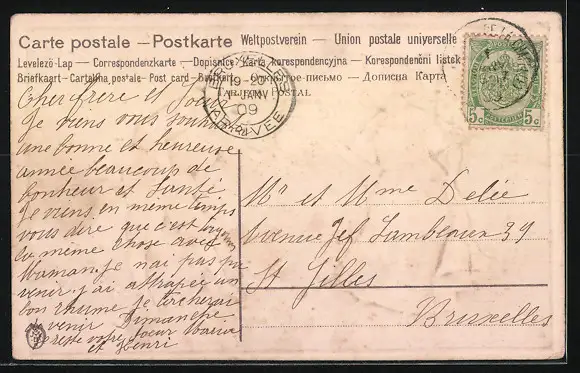 Carte postale — Postkarte Weltpostverein — Union postale universelle
Levelező-Lap — Correspondenzkarte — Dopisnice Karta korespondencyjna — Korespondenční lístek
Briefkaart - Cartolina postale - Post card - Brefkort - письмо — Дописна Карта
TARJETA POSTAL
19-20
1 JANV
09
ARRIVEE
5c 5c
Cher frère et Soeur
Je viens vous souhai
une bonne et heureuse
année beaucoup de
bonheur et Santé
Je viens en même temps
vous dire que c'est
la même chose avec
Maman Je n'ai pas pu
venir j'ai attrapée un
bon rhume Je tacherai
venir Dimanche
reste votre soeur Maria
et Henri
Mr et Mme Delie
Avenue Jef Lambeaux 39
St Gilles
Bruxelles